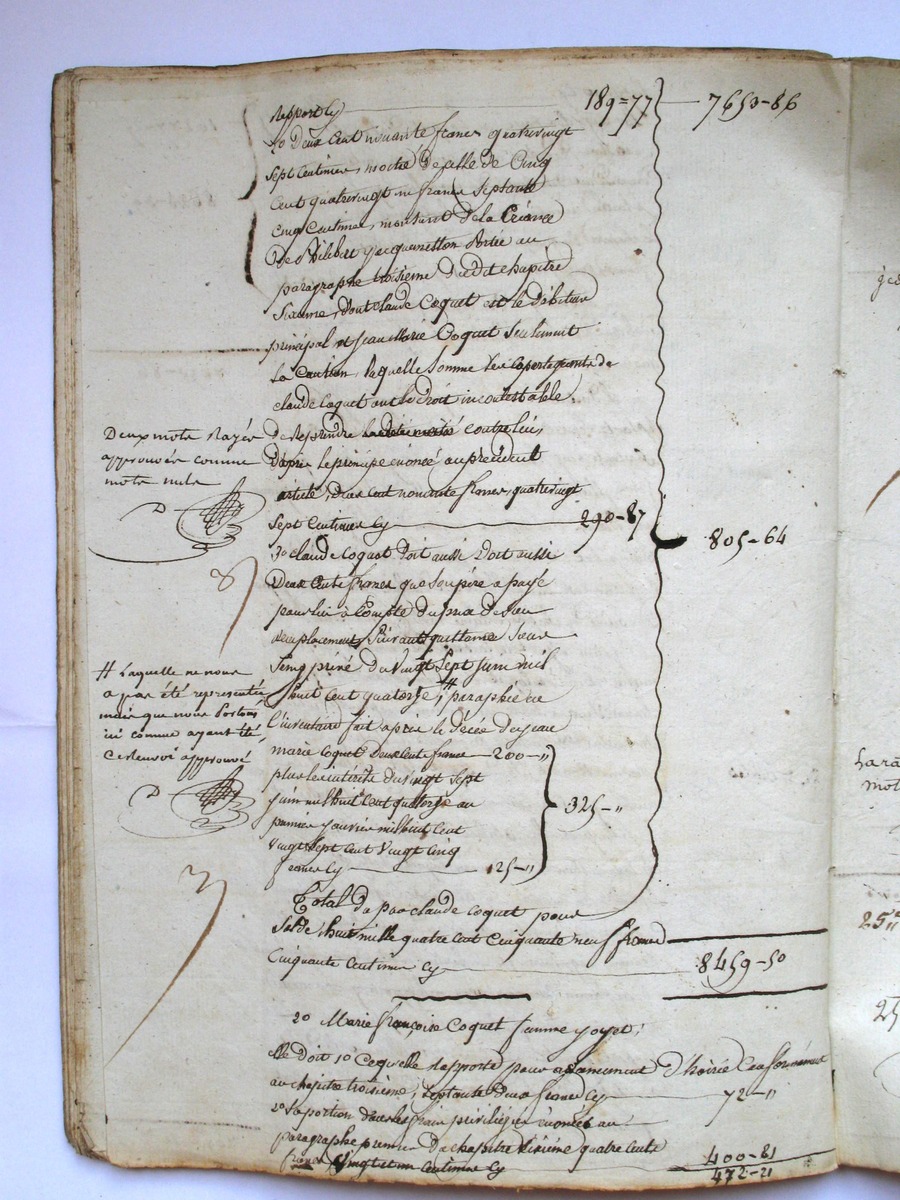 Report Cy 189=77 7653-86
2o Deux Cent nonante francs quatrevingt
Sept Centimes, moitié de celle de Cinq
Cent quatrevingt un francs Septante
Cinq Centimes, montant de la Créance
de Philibert Jacquenetton Portée au
paragraphe troisième dudit chapitre
Sixième, dont claude Coquet est le débiteur
principal et jean Marie Coquet Seulement
la Caution, laquelle Somme les
claude Coquet ont le droit incontestable,
Deux mots Rayés
approuvés comme
mots nuls
de Reprendre contre lui,
D'après le principe énoncé au précédent
article, deux cent nonante francs, quatrevingt
Sept Centimes Cy 290-87
805-64
3o claude Coquet Doit aussi Doit aussi
Deux Cents francs que Son père a payé
pour lui à Compte du prix de Son
remplacement, Suivant quittance Sous
Seing privé du Vingt Sept juin mil
huit cent quatorze, # paraphée en
# Laquelle ne nous
a pas été representée
mais que nous Portons
ici comme ayant été,
ce Renvoi approuvé
l'inventaire fait après le décée de jean
marie Coquet Deux Cent francs 200-"
plus les intérêts du vingt Sept
juin mil huit Cent quatorze au
premier janvier mil huit Cent
vingt Sept Cent Vingt Cinq
francs Cy 125-"
325-"
Total du par claude Coquet pour
Solde, huit mille quatre Cent Cinquante neuf francs
Cinquante Centimes Cy 8459-50
2o Marie françoise Coquet femme joyet;
elle doit 1o Ce qu'elle rapporte pour avancement d'hoirie
au chapitre troisième, Septante deux francs Cy 72-"
2o Sa portion dans les frais privilégiés énoncés au
paragraphe premier du chapitre Sixième quatre Cents
francs Vingt et un Centimes Cy 400-21
472-21